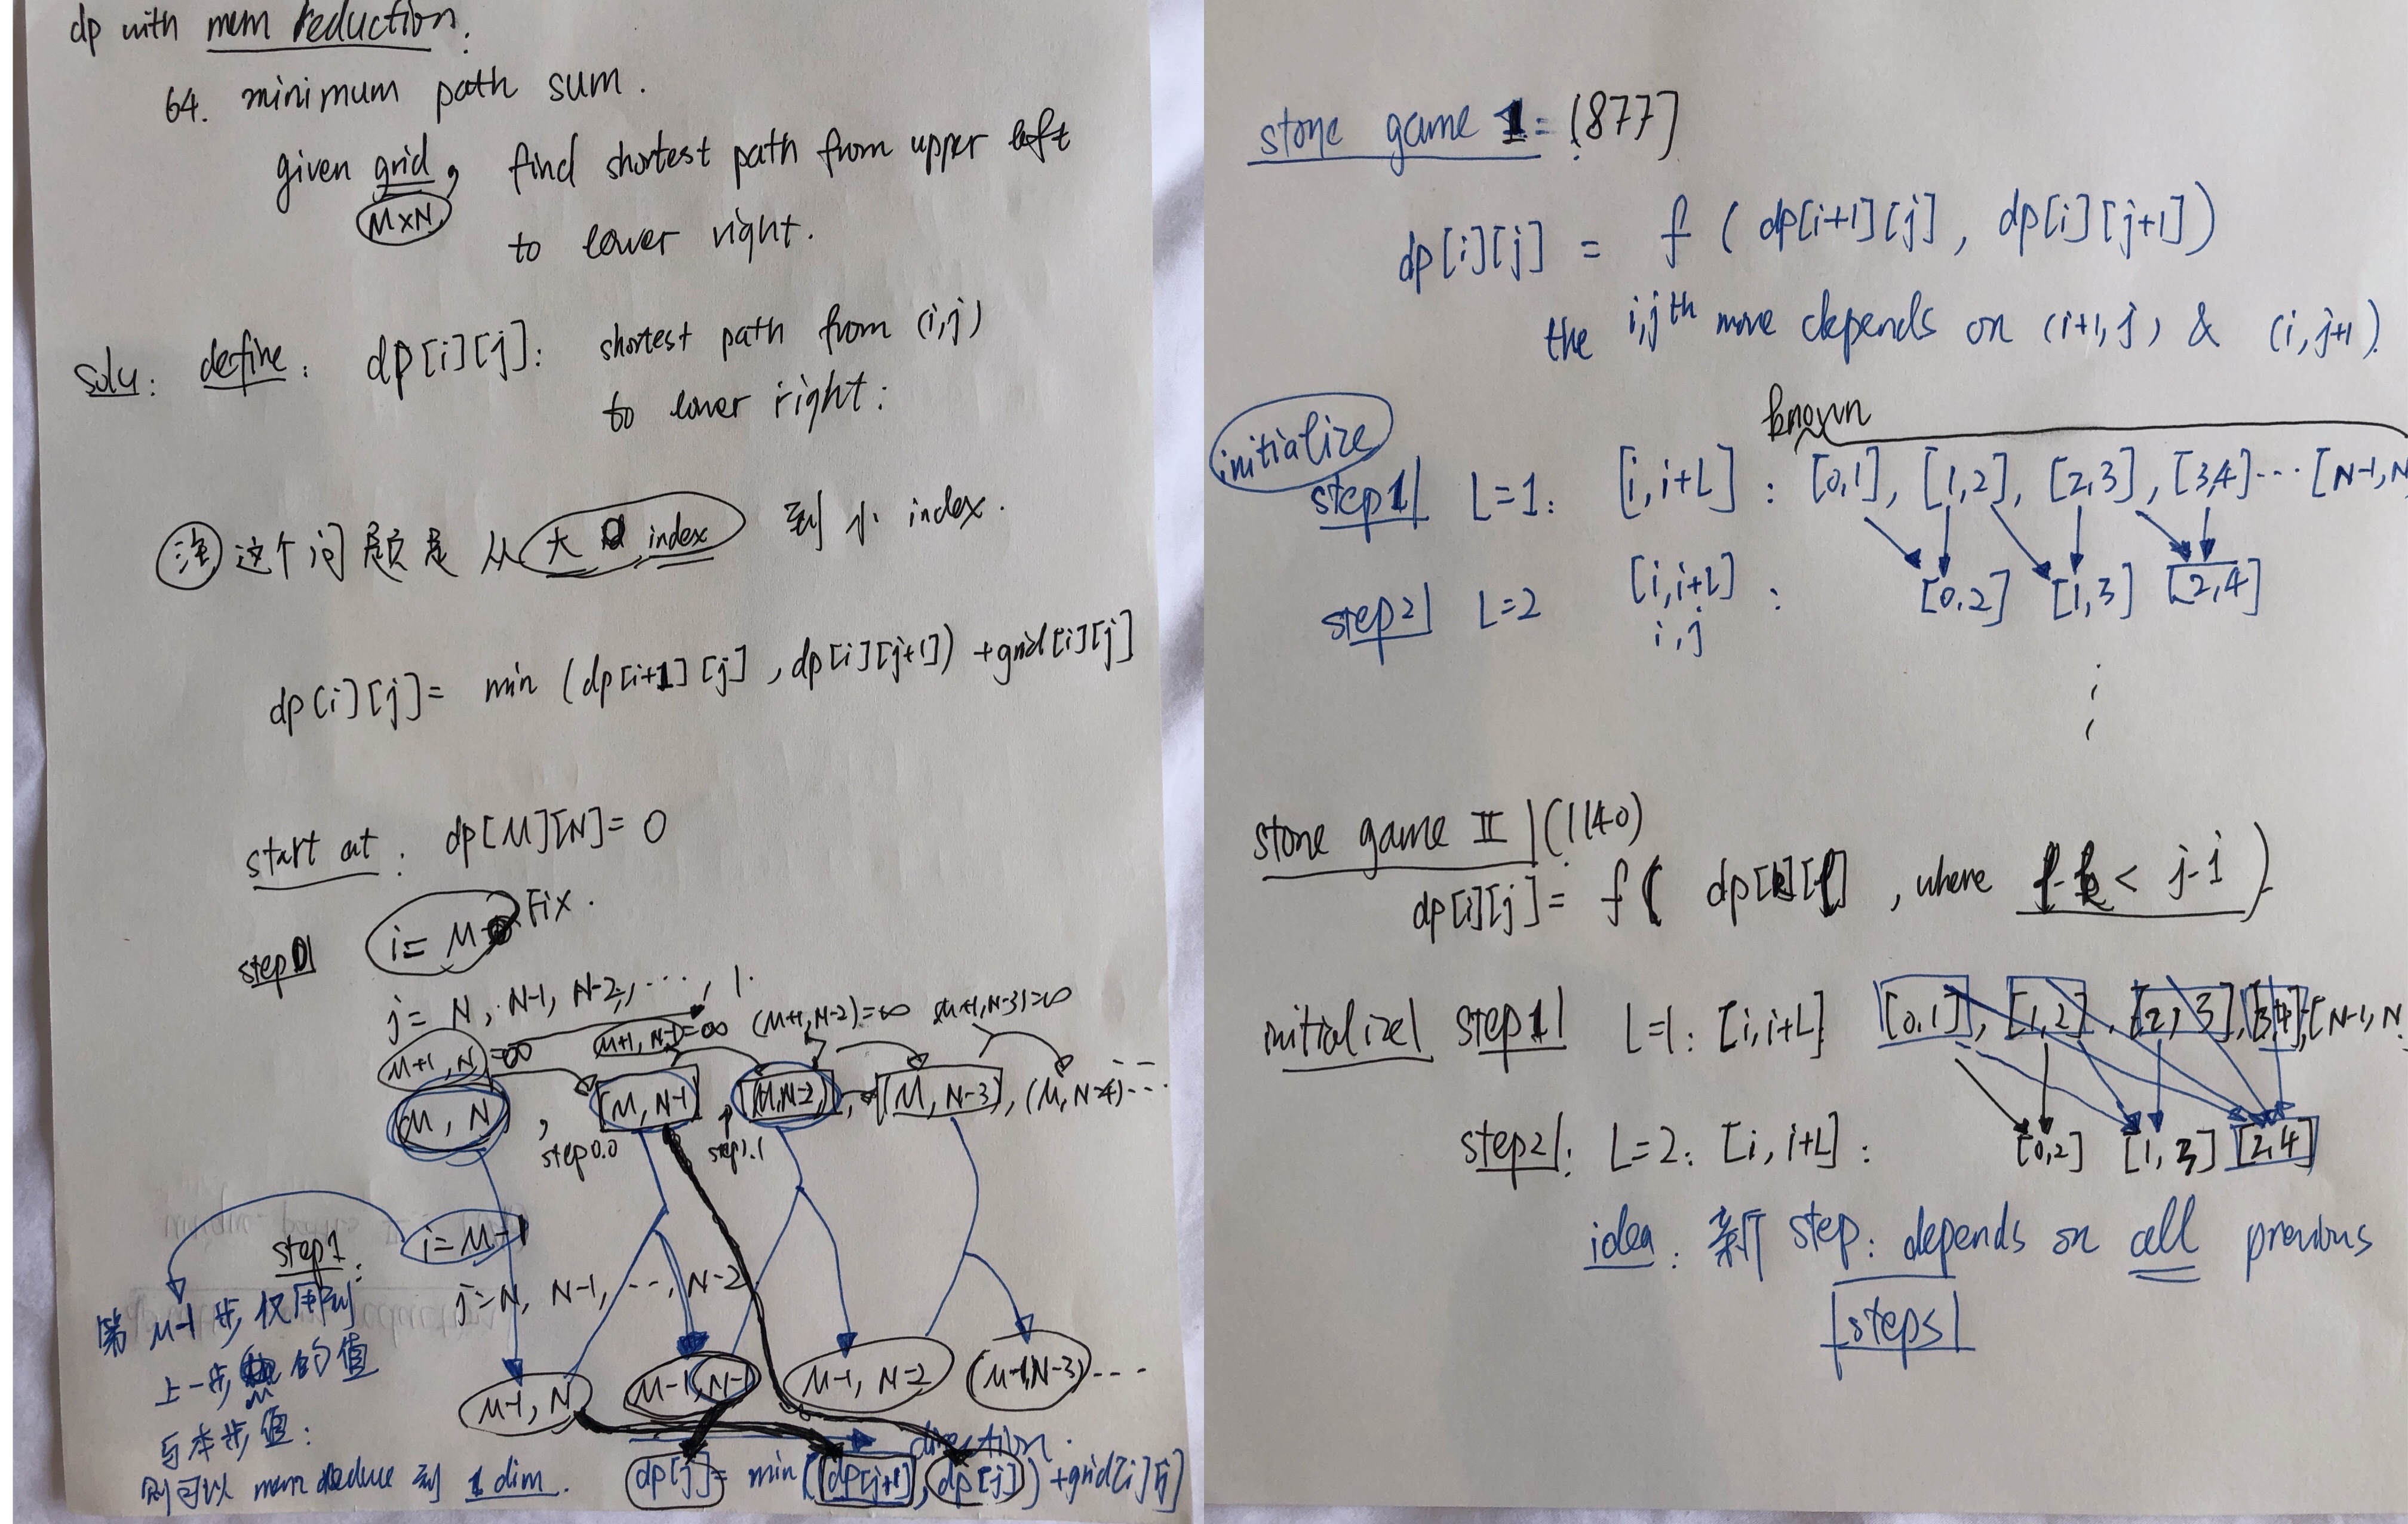 dp with mem reduction.
64. minimum path sum.
given grid, find shortest path from upper left
M×N
to lower right.
Solu: define: dp[i][j]: shortest path from (i,j)
to lower right:
注 这个问题是 从大 index 到 小 index.
dp[i][j]= min (dp[i+1][j], dp[i][j+1]) +grid[i][j]
start at: dp[M][N]= 0
step0 i= M Fix.
j= N, N-1, N-2, ..., 1.
M+1, N =∞ M+1, N-1=∞ (M+1, N-2)=∞ (M+1, N-3)=∞
M, N, [M, N-1], [M,N-2], [M, N-3], (M, N-4)...
step0.0
step1: i= M-1
j=N, N-1, ..., N-2
第 M-1 步 仅用到
上一步 的值
与本步值:
则可以 mem reduce 到 1 dim.
M-1, N M-1, N-1 M-1, N-2 (M-1,N-3)...
direction.
dp[j]= min(dp[j+1], dp[j]) +grid[i][j]
stone game 1: [877]
dp[i][j] = f ( dp[i+1][j], dp[i][j+1])
the i,jth move depends on (i+1, j) & (i, j+1).
known
initialize
step1 L=1: [i, i+L] : [0,1], [1,2], [2,3], [3,4]... [N-1, N
step2 L=2 [i, i+L] : [0,2] [1,3] [2,4]
i, j
stone game II (1140)
dp[i][j]= f( dp[k][l], where l-k < j-i )
initialize step1 L=1: [i, i+L] [0,1], [1,2], [2, 3], [3,4], [N-1, N
step2: L=2: [i, i+L]: [0,2] [1,3] [2,4]
idea: 新 step: depends on all previous
steps